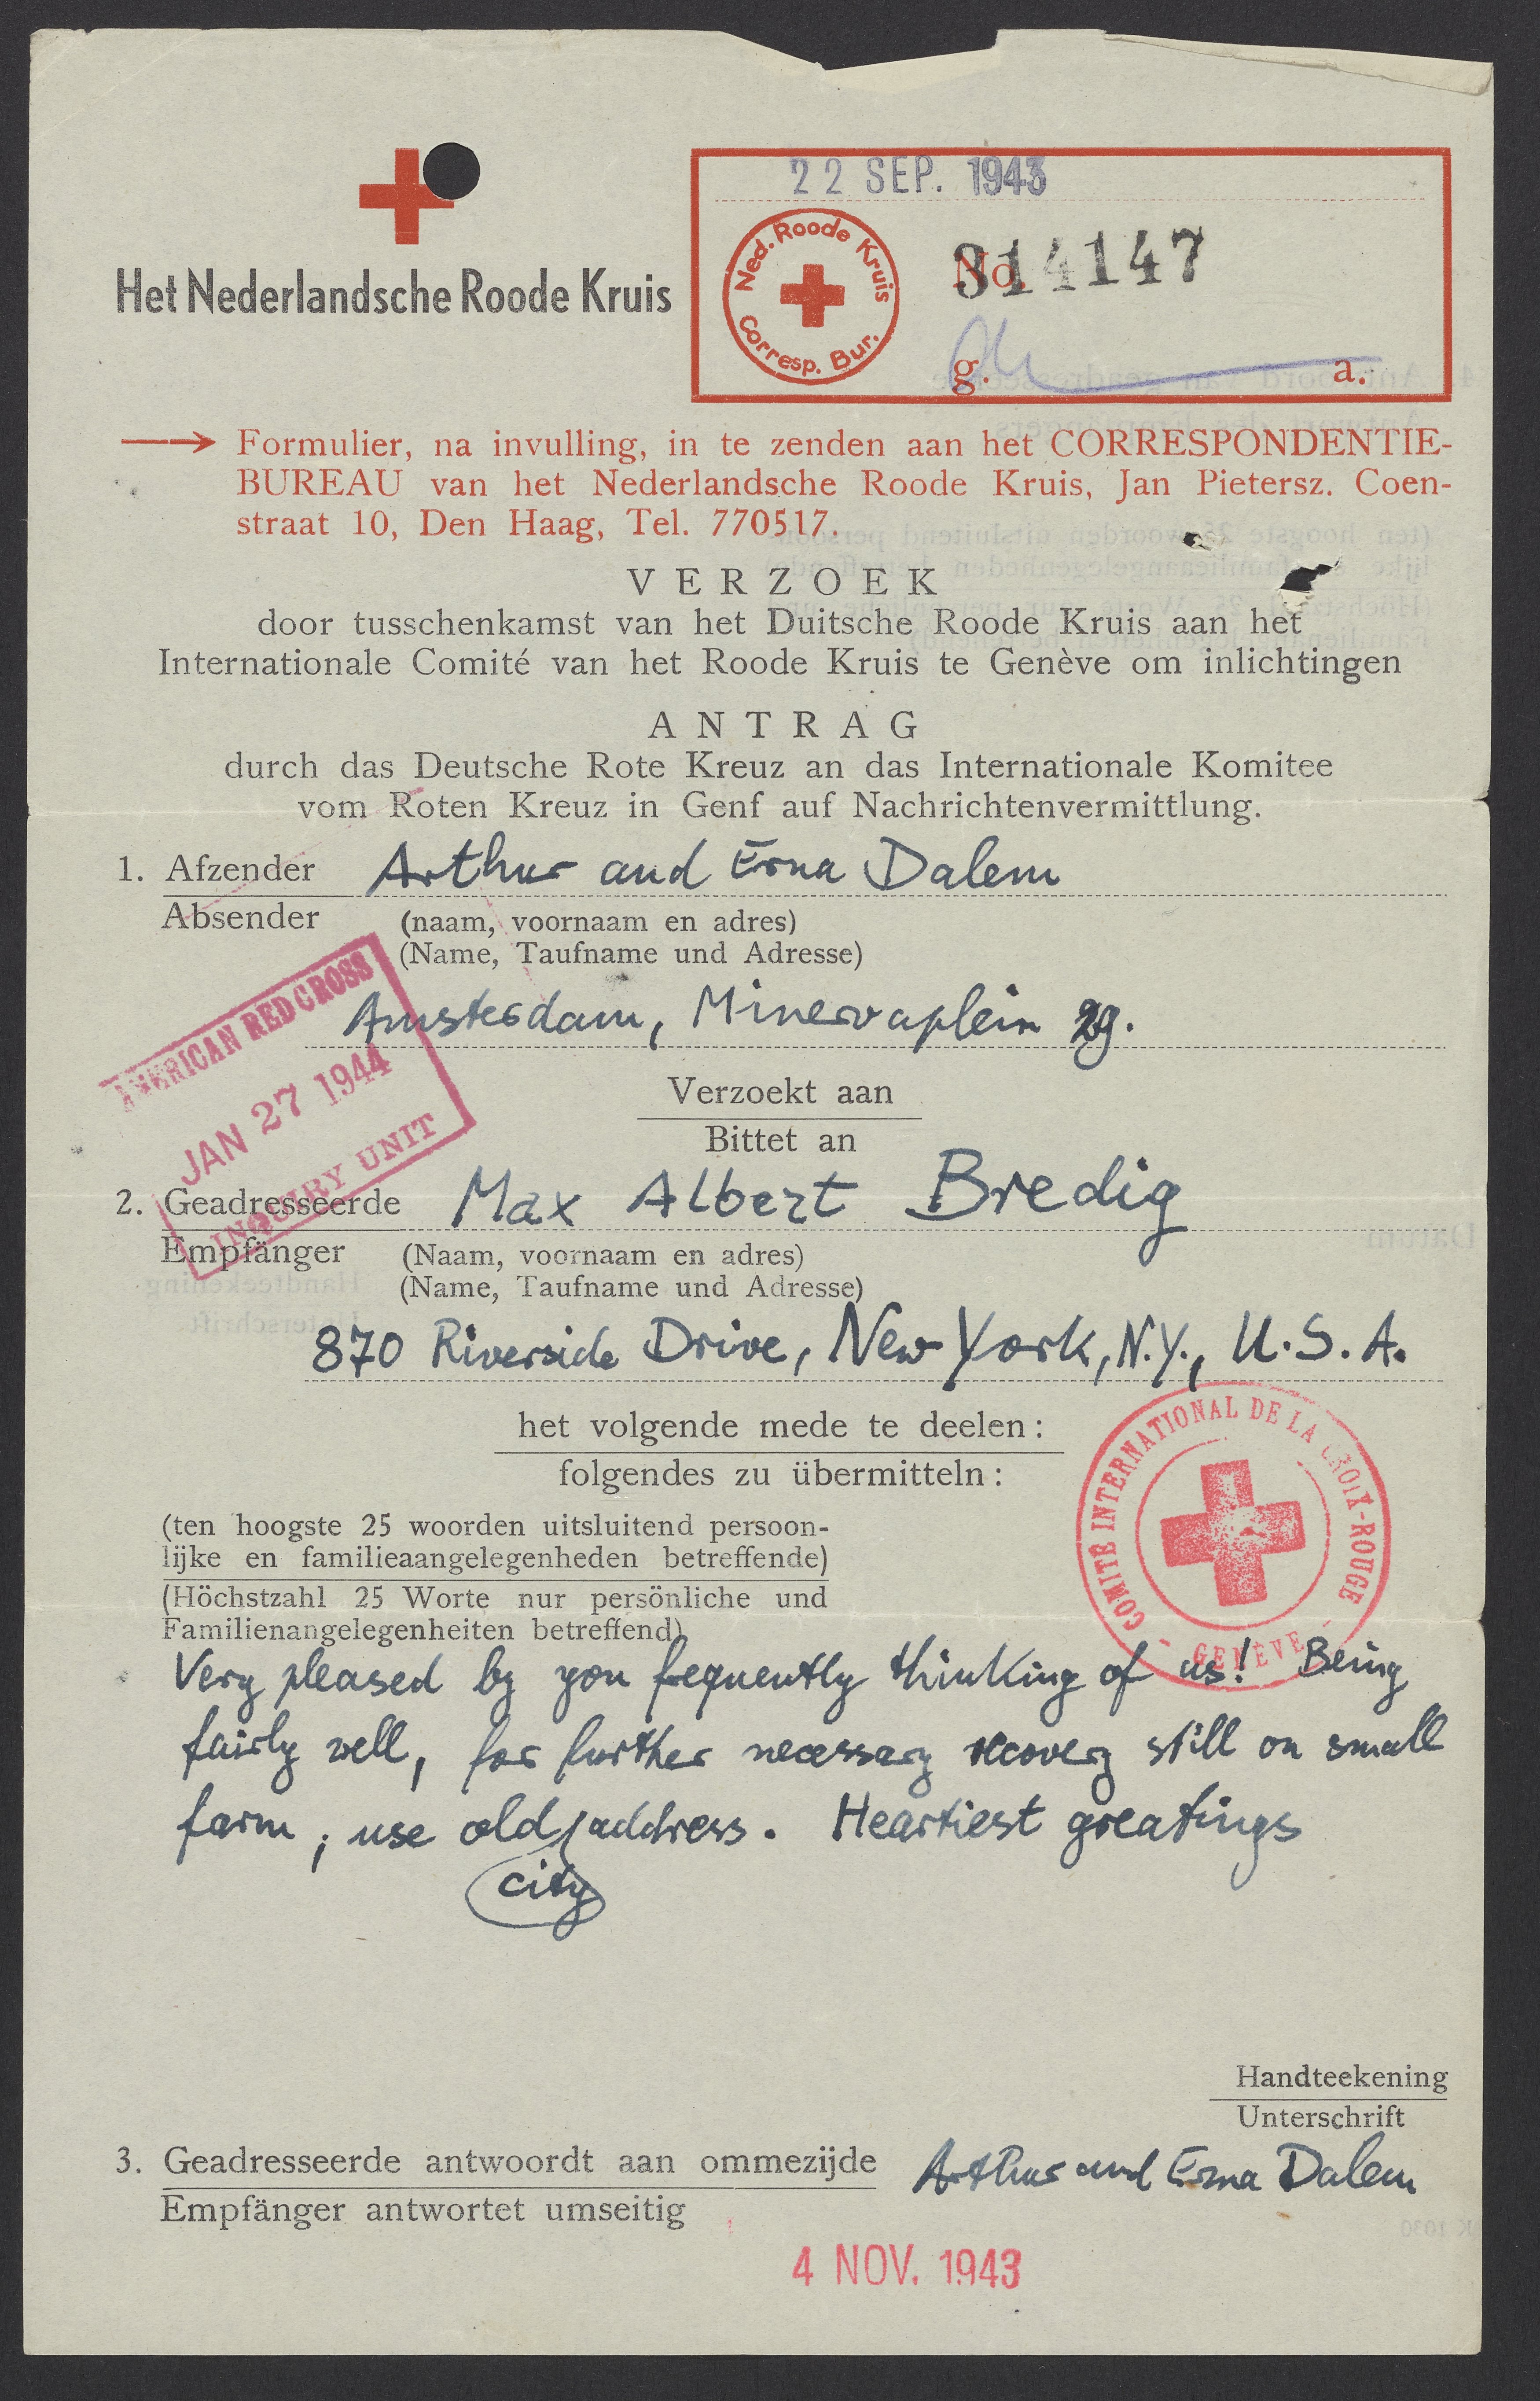 22 SEP. 1943
Ned. Roode Kruis
Corresp. Bur.
No.
314147
g. a.
Het Nederlandsche Roode Kruis
Formulier, na invulling, in te zenden aan het CORRESPONDENTIE-
BUREAU van het Nederlandsche Roode Kruis, Jan Pietersz. Coen-
straat 10, Den Haag, Tel. 770517.
VERZOEK
door tusschenkamst van het Duitsche Roode Kruis aan het
Internationale Comité van het Roode Kruis te Genève om inlichtingen
ANTRAG
durch das Deutsche Rote Kreuz an das Internationale Komitee
vom Roten Kreuz in Genf auf Nachrichtenvermittlung.
1. Afzender Arthur and Erna Dalem
Absender (naam, voornaam en adres)
(Name, Taufname und Adresse)
AMERICAN RED CROSS
JAN 27 1944
INQUIRY UNIT
Amsterdam, Minervaplein 29.
Verzoekt aan
Bittet an
2. Geadresseerde Max Albert Bredig
Empfänger (Naam, voornaam en adres)
(Name, Taufname und Adresse)
870 Riverside Drive, New York, N.Y., U.S.A.
het volgende mede te deelen:
folgendes zu übermitteln:
COMITÉ INTERNATIONAL DE LA CROIX-ROUGE
- GENÈVE -
(ten hoogste 25 woorden uitsluitend persoon-
lijke en familieaangelegenheden betreffende)
(Höchstzahl 25 Worte nur persönliche und
Familienangelegenheiten betreffend)
Very pleased by you frequently thinking of us! Being
fairly well, for further necessary recovery still on small
farm, use old address. Heartiest greatings
city
Handteekening
Unterschrift
3. Geadresseerde antwoordt aan ommezijde Arthur and Erna Dalem
Empfänger antwortet umseitig
4 NOV. 1943